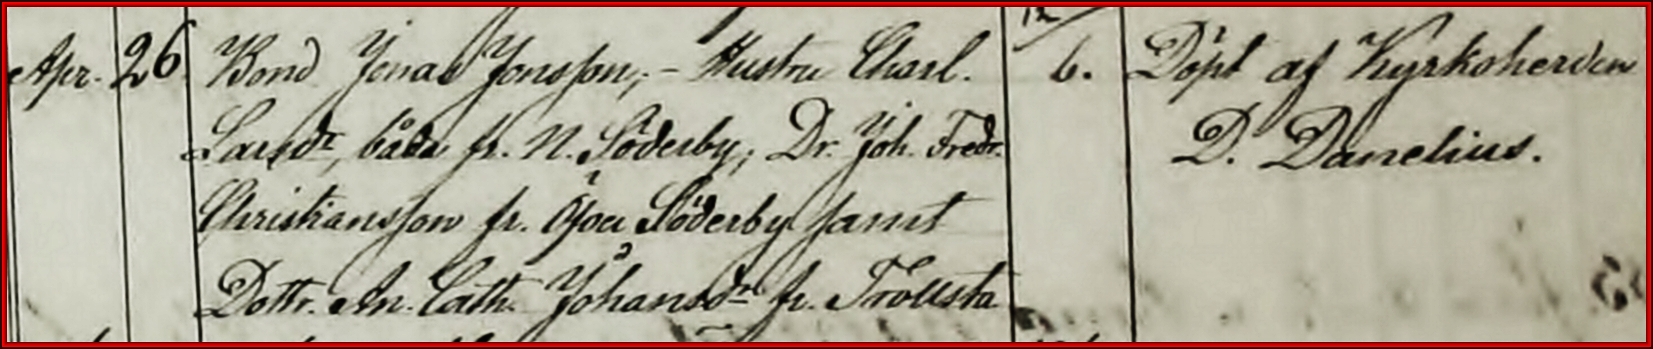 Apr. 26 Bond Jonas Jonsson, - Hustru Charl. 6. Döpt af Kyrkoherden
Larsdr, båda fr. N. Söderby; Dr. Joh. Fredr. D. Danelius.
Christiansson fr. Söderby samt
Dottr. An. Cath. Johansdr fr. Trollsta